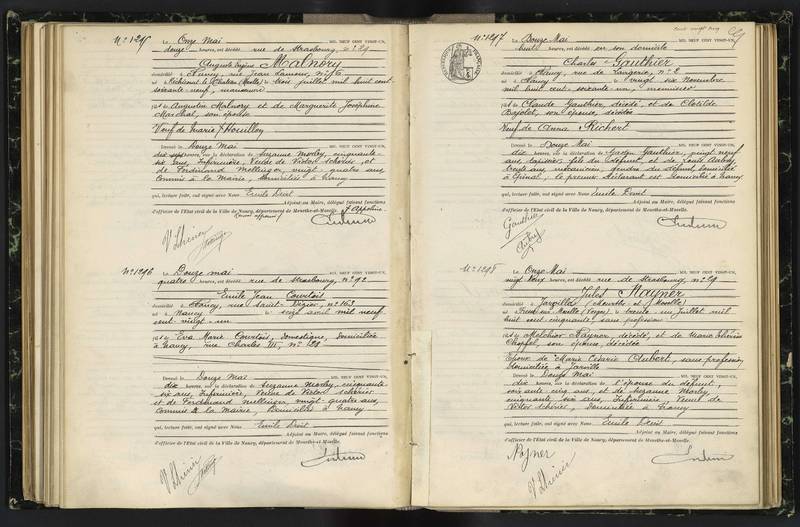 N° 1245 Le Onze Mai MIL NEUF CENT VINGT-UN,
douze heures, est décédé rue de Strasbourg, n° 29
Auguste Eugène Malnory
domicilié à Nancy, rue Jean Lamour, n° 16
né à Richmesnil le Château (Moselle) trois juillet mil huit cent
soixante neuf, manœuvre
fils de Augustin Malnory et de Marguerite Joséphine
Maréchal, son épouse
Veuf de Marie Houillon
Dressé le Douze Mai MIL NEUF CENT VINGT-UN,
dix heures, sur la déclaration de Suzanne Morley, cinquante-
six ans, infirmière, Veuve de Victor Schérier, et
de Ferdinand Mellinger, vingt-quatre ans,
commis à la Mairie, domiciliés à Nancy
qui, lecture faite, ont signé avec Nous Emile Droit
Adjoint au Maire, délégué faisant fonctions
d'officier de l'État civil de la Ville de Nancy, département de Meurthe-et-Moselle.
N° 1246 Le Douze mai MIL NEUF CENT VINGT-UN,
quatre heures, est décédé rue de Strasbourg, n° 92
Emile Jean Courtois
domicilié à Nancy, rue Saint-Dizier, n° 163
né à Nancy le avril mil neuf
cent vingt-un
fils de Eva Marie Courtois, domestique, domiciliée
à Nancy, rue Charles III, n° 128
Dressé le Douze Mai MIL NEUF CENT VINGT-UN,
dix heures, sur la déclaration de Suzanne Morley, cinquante
six ans, infirmière, Veuve de Victor Schérier
et de Ferdinand Mellinger, vingt-quatre ans,
commis à la Mairie, domiciliés à Nancy
qui, lecture faite, ont signé avec Nous Emile Droit
Adjoint au Maire, délégué faisant fonctions
d'officier de l'État civil de la Ville de Nancy, département de Meurthe-et-Moselle.
N° 1247 Le Douze Mai MIL NEUF CENT VINGT-UN,
huit heures, est décédé en son domicile
Charles Gauthier
domicilié à Nancy, rue de n° 2
né à Nancy le vingt six Novembre
mil huit cent soixante-un, menuisier
fils de Claude Gauthier, décédé, et de Clotilde
Bajolet, son épouse, décédée
Veuf de Anna Richert
Dressé le Douze Mai MIL NEUF CENT VINGT-UN,
dix heures, sur la déclaration de Gauthier, vingt neuf
ans, tapissier, fils du défunt, et de Louis Aubry,
trente ans, mécanicien, gendre du défunt, domicilié
à Épinal, le premier déclarant est domicilié à Nancy
qui, lecture faite, ont signé avec Nous Emile Droit
Adjoint au Maire, délégué faisant fonctions
d'officier de l'État civil de la Ville de Nancy, département de Meurthe-et-Moselle.
Gauthier
Aubry
N° 1248 Le Onze Mai MIL NEUF CENT VINGT-UN,
vingt deux heures, est décédé rue de Strasbourg, n° 29
Jules Nayner
domicilié à Jarville (Meurthe et Moselle)
né à (Vosges) le trente un juillet mil
huit cent cinquante, sans profession
fils de Melchior Nayner, décédé, et de Marie
Chapel, son épouse, décédée
Époux de Marie Césarie Aubert, sans profession,
domiciliée à Jarville
Dressé le Douze Mai MIL NEUF CENT VINGT-UN,
dix heures, sur la déclaration de l'épouse du défunt,
soixante cinq ans, et de Suzanne Morley,
cinquante six ans, infirmière, Veuve de
Victor Schérier, domiciliée à Nancy
qui, lecture faite, ont signé avec Nous Emile Droit
Adjoint au Maire, délégué faisant fonctions
d'officier de l'État civil de la Ville de Nancy, département de Meurthe-et-Moselle.
Nayner